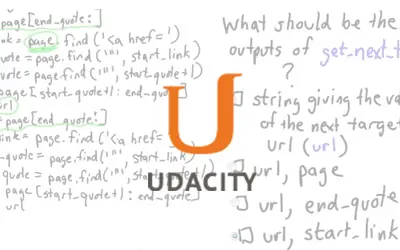 page[end_quote:]
ink = page.find('<a href=')
quote = page.find('"', start_link)
uote = page.find('"', start_quote+1)
page[start_quote+1: end_quote]
url
= page[end_quote:]
link = page.find('<a href=
_quote = page.find('"', start_link)
quote = page.find('"', start_quote+1)
page[start_quote+1: end_quote]
url
UDACITY
What should be the
outputs of get_next_t
?
string giving the va
of the next target
url (url)
url, page
url, end_quote
url, start_link